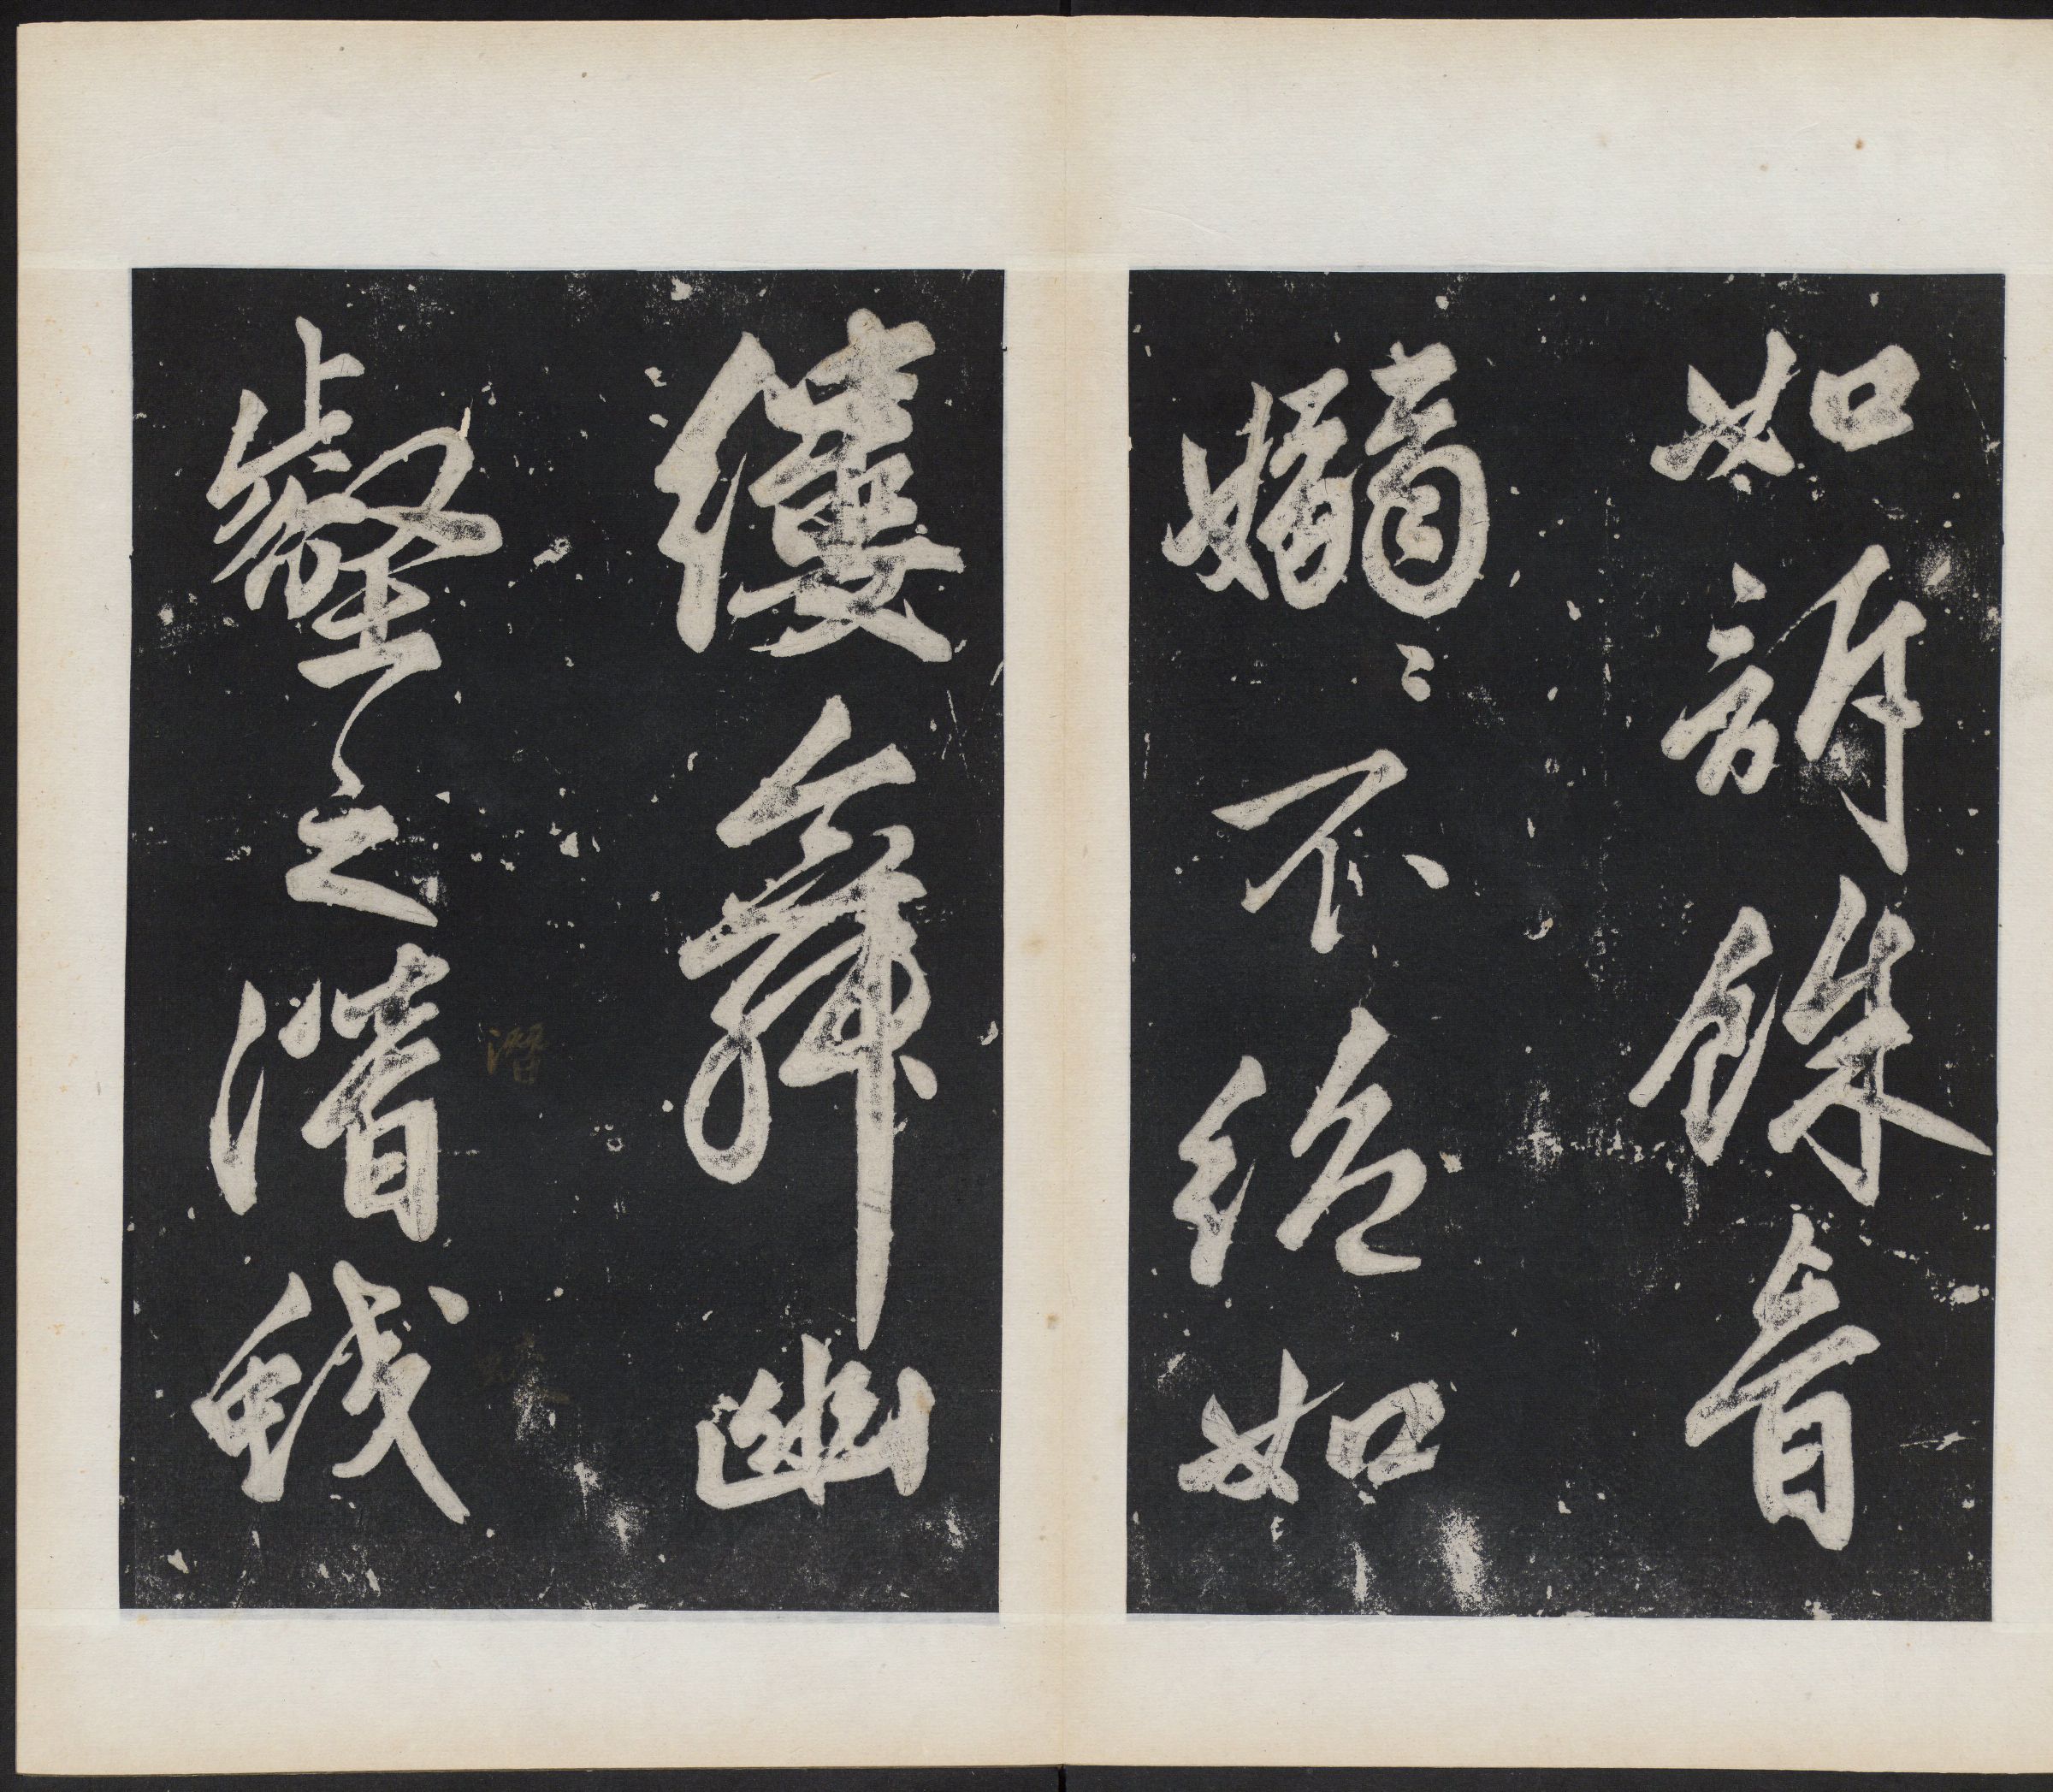 如訴餘音
嫋〻不絕如
縷舞幽
壑之潛
蛟